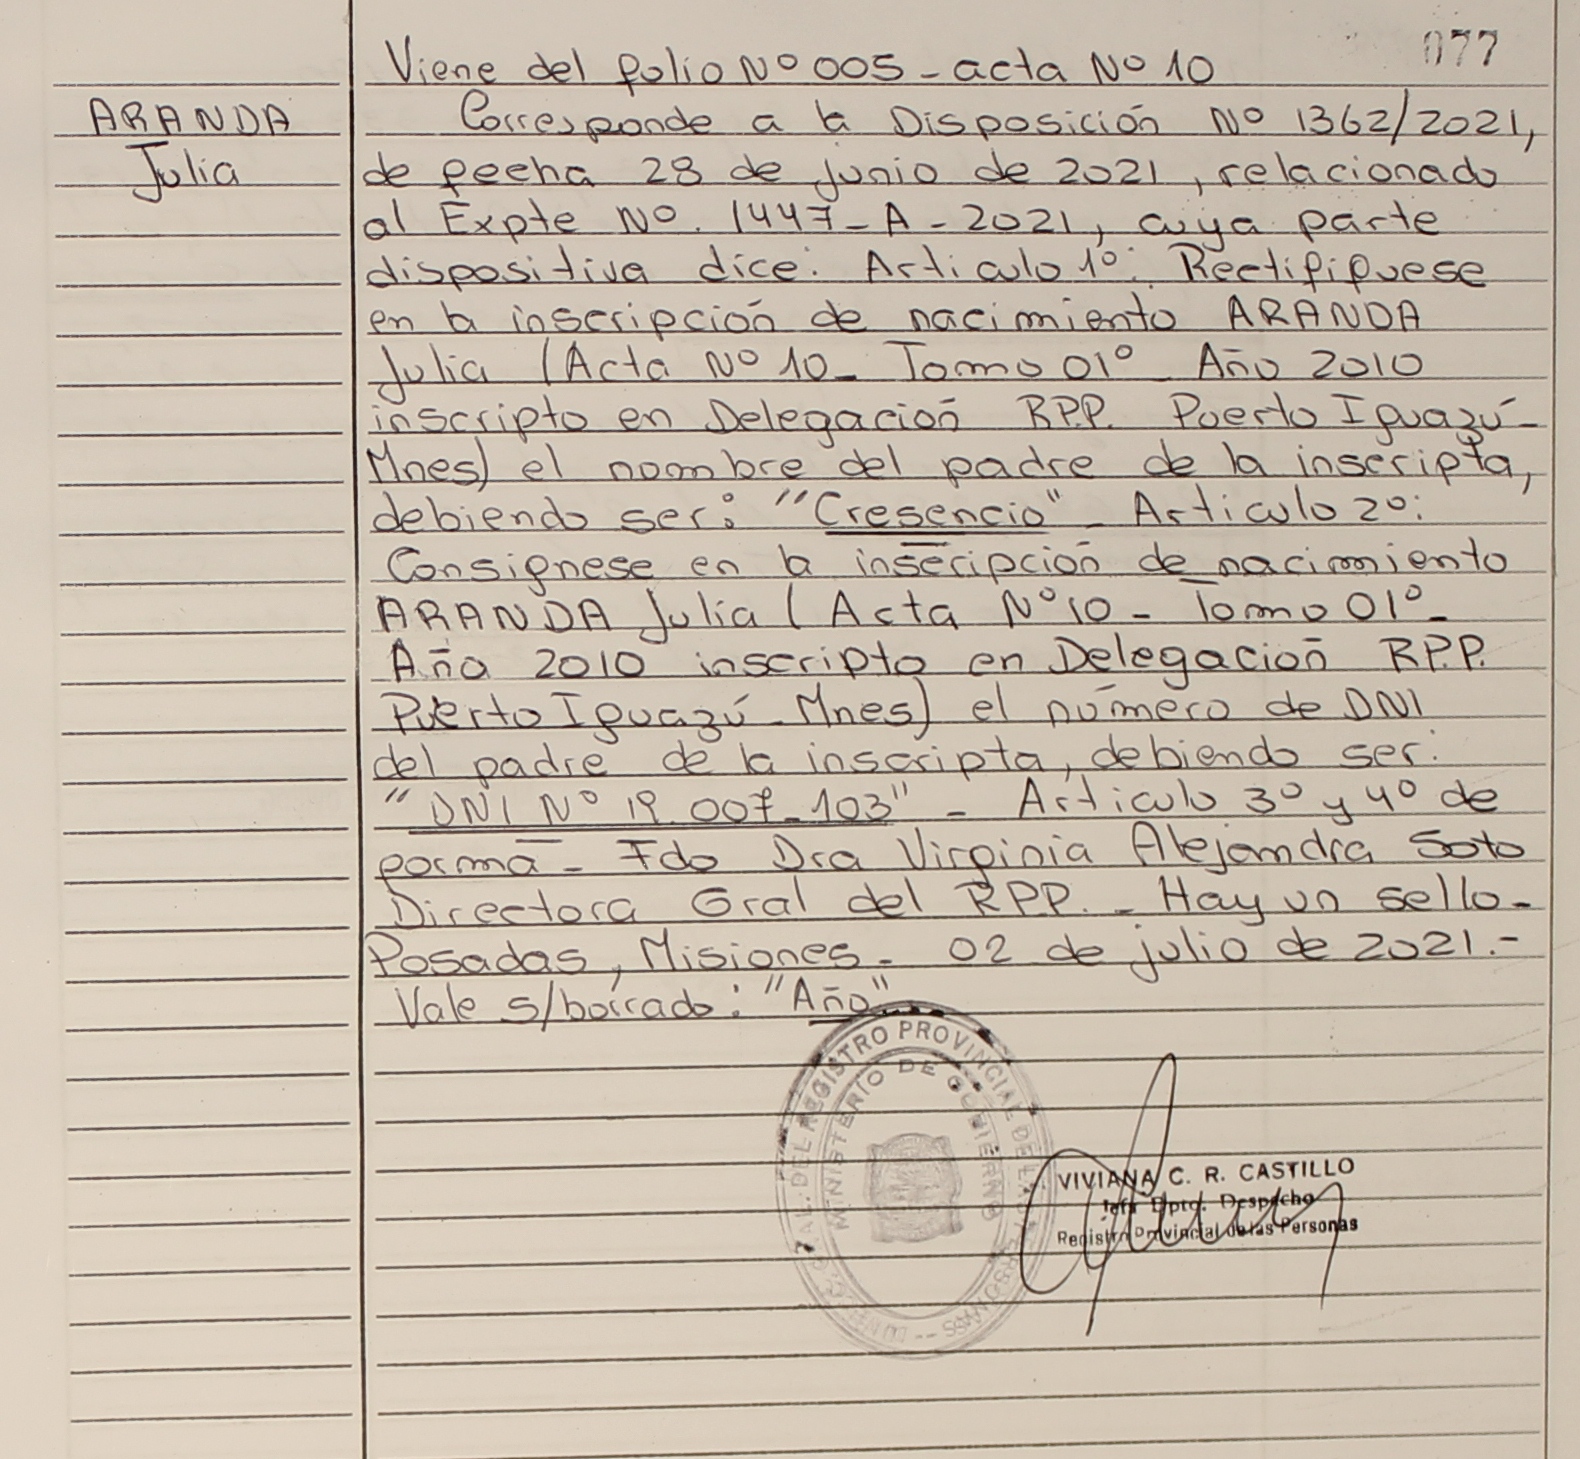 077
Viene del folio Nº 005 - acta Nº 10
ARANDA
Julia
Corresponde a la Disposición Nº 1362/2021,
de fecha 28 de junio de 2021, relacionado
al Expte Nº. 1447-A-2021, cuya parte
dispositiva dice: Articulo 1º: Rectififuese
en la inscripción de nacimiento ARANDA
Julia (Acta Nº 10 - Tomo 01º Año 2010
inscripto en Delegación RPP. Puerto Iguazú -
Mnes) el nombre del padre de la inscripta,
debiendo ser: "Cresencio" - Articulo 2º:
Consignese en la inscripción de nacimiento
ARANDA Julia (Acta Nº 10 - Tomo 01º -
Año 2010 inscripto en Delegación RP.P.
Puerto Iguazú - Mnes) el número de DNI
del padre de la inscripta, debiendo ser:
"DNI Nº 19.007.103" - Articulo 3º y 4º de
forma - Fdo Dra Virginia Alejandra Soto
Directora Gral del RPP. - Hay un sello -
Posadas, Misiones - 02 de julio de 2021.-
Vale s/borrado: "Año"
REGISTRO PROVINCIAL DE LAS PERSONAS
MINISTERIO DE GOBIERNO
VIVIANA C. R. CASTILLO
Jefa Dpto. Despacho
Registro Provincial de las Personas